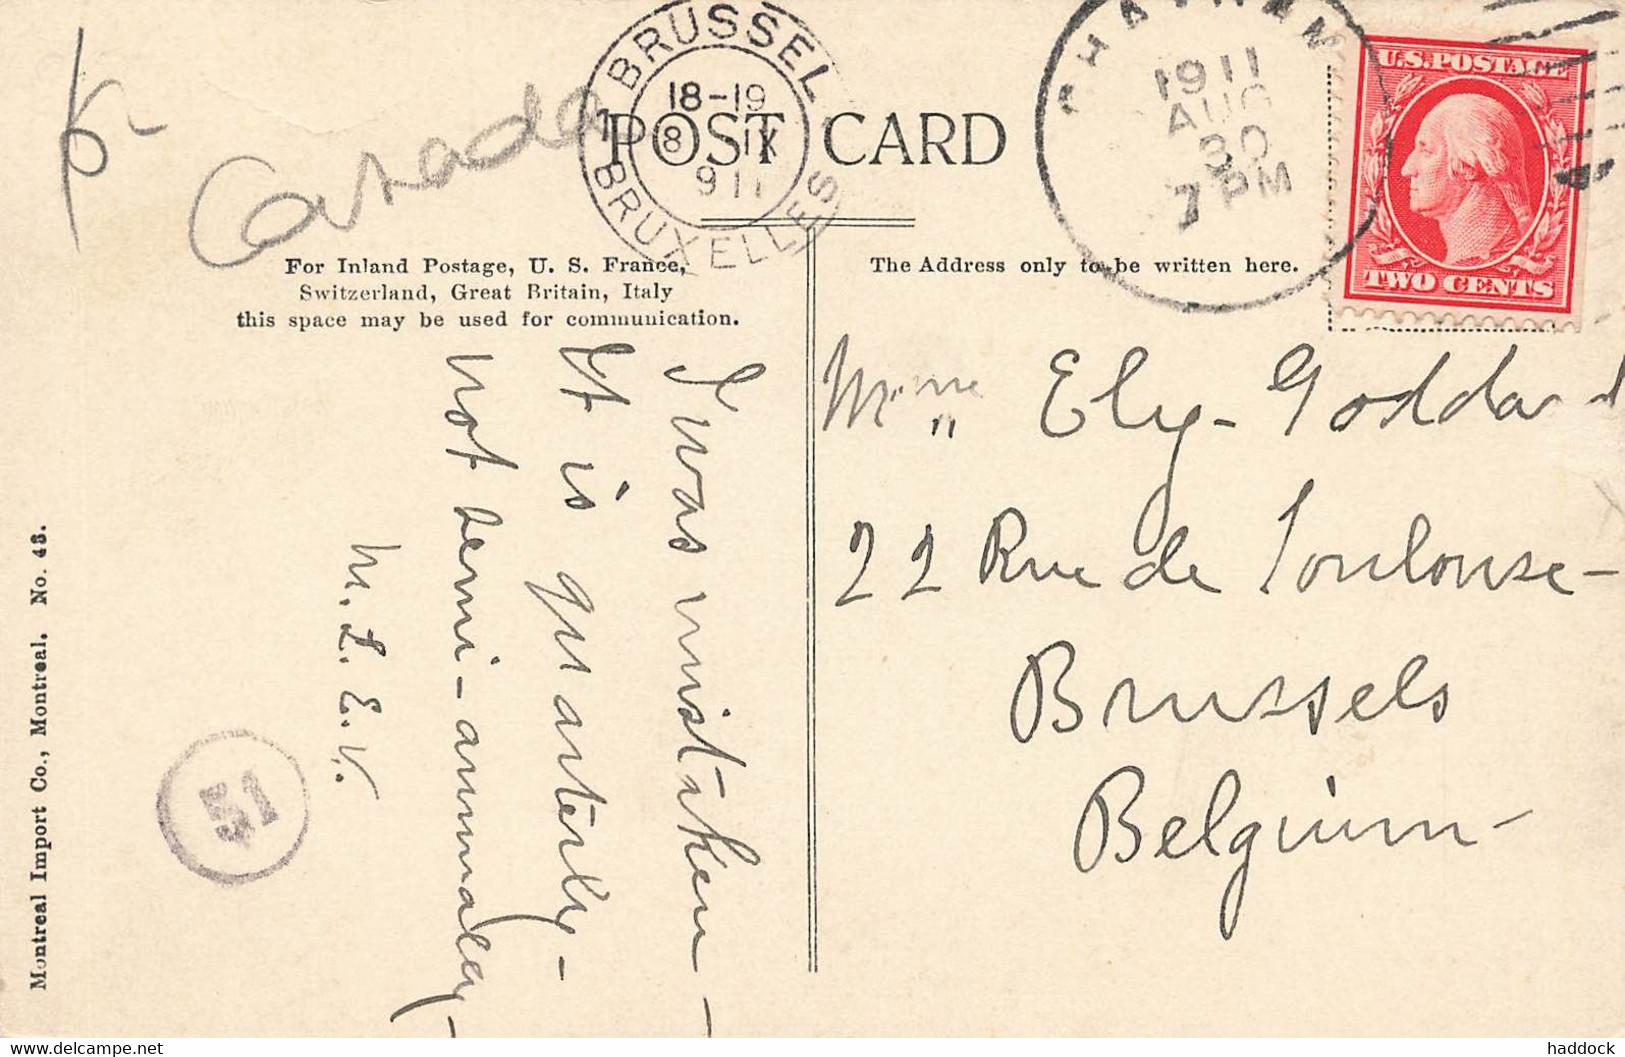 Canada
BRUSSEL
18-19
8 IX
911
BRUXELLES
1
POST CARD
CHATHAM
1911
AUG
30
7 PM
U.S. POSTAGE
TWO CENTS
For Inland Postage, U. S. France,
Switzerland, Great Britain, Italy
this space may be used for communication.
The Address only to be written here.
I was mistaken –
It is quarterly –
not semi-annually –
M. L. E. V.
Mme Ely-Goddard
22 Rue de Toulouse –
Brussels
Belgium –
51
Montreal Import Co., Montreal. No. 43.
haddock